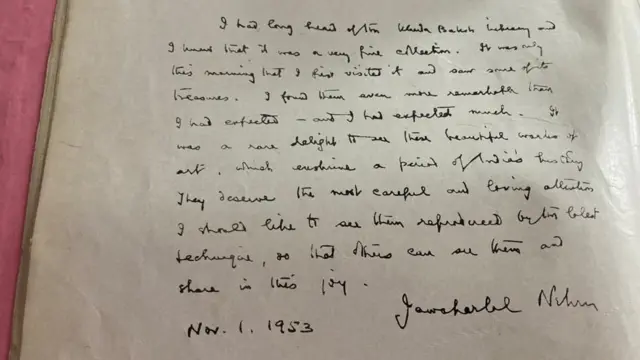 I had long heard of the Khuda Baksh Library and
I knew that it was a very fine collection. It was only
this morning that I first visited it and saw some of its
treasures. I found them even more remarkable than
I had expected – and I had expected much. It
was a rare delight to see these beautiful works of
art, which enshrine a period of India's history
They deserve the most careful and loving attention
I should like to see them reproduced by the latest
technique, so that others can see them and
share in this joy.
Jawaharlal Nehru
Nov. 1, 1953